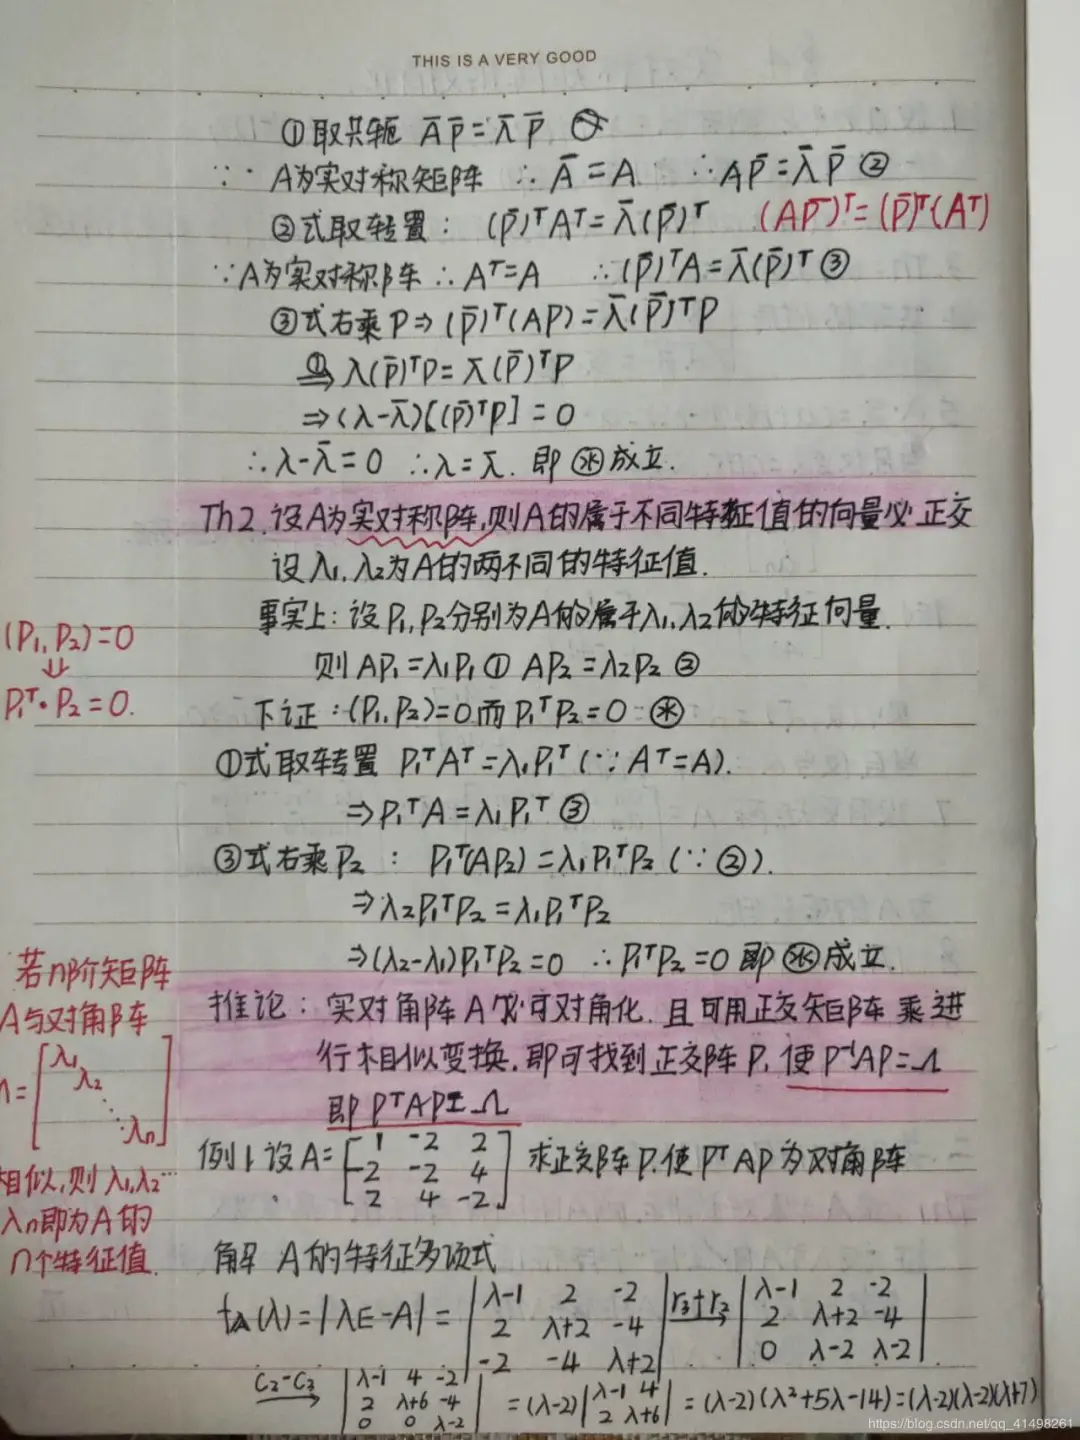 THIS IS A VERY GOOD
①取共轭 A̅ P̅ = λ̅ P̅
∵ A为实对称矩阵 ∴ A̅ = A ∴ AP̅ = λ̅ P̅ ②
②式取转置: (P̅)ᵀAᵀ = λ̅(P̅)ᵀ (AP̅)ᵀ = (P̅)ᵀ(Aᵀ)
∵A为实对称阵 ∴ Aᵀ=A ∴(P̅)ᵀA = λ̅(P̅)ᵀ ③
③式右乘P ⇒ (P̅)ᵀ(AP) = λ̅(P̅)ᵀP
①⇒ λ(P̅)ᵀP = λ̅(P̅)ᵀP
⇒ (λ-λ̅)[(P̅)ᵀP] = 0
∴ λ-λ̅ = 0 ∴ λ = λ̅. 即 ※ 成立.
Th2. 设A为实对称阵,则A的属于不同特征值的向量必正交
设λ₁, λ₂为A的两不同的特征值.
事实上: 设P₁, P₂分别为A的属于λ₁, λ₂的特征向量.
则 AP₁ = λ₁P₁ ① AP₂ = λ₂P₂ ②
(P₁, P₂)=0
⇓
P₁ᵀ·P₂ = 0.
下证: (P₁, P₂)=0 而 P₁ᵀP₂=0 ※
①式取转置 P₁ᵀAᵀ = λ₁P₁ᵀ (∵ Aᵀ=A).
⇒ P₁ᵀA = λ₁P₁ᵀ ③
③式右乘P₂ : P₁ᵀ(AP₂) = λ₁P₁ᵀP₂ (∵ ②).
⇒ λ₂P₁ᵀP₂ = λ₁P₁ᵀP₂
⇒ (λ₂-λ₁)P₁ᵀP₂ = 0 ∴ P₁ᵀP₂ = 0 即 ※ 成立.
推论: 实对角阵A必可对角化. 且可用正交矩阵乘进
行相似变换. 即可找到正交阵P, 使 P⁻¹AP = Λ
即 PᵀAP = Λ
若n阶矩阵
A与对角阵
Λ = [λ₁ λ₂ ⋱ λn]
相似, 则λ₁, λ₂…
λn即为A的
n个特征值.
例1 设A = [1 -2 2; -2 -2 4; 2 4 -2] 求正交阵P. 使 PᵀAP 为对角阵
解 A的特征多项式
f_A(λ) = |λE-A| = |λ-1 2 -2; 2 λ+2 -4; -2 -4 λ+2| r₃+r₂→ |λ-1 2 -2; 2 λ+2 -4; 0 λ-2 λ-2|
c₂-c₃→ |λ-1 4 -2; 2 λ+6 -4; 0 0 λ-2| = (λ-2)|λ-1 4; 2 λ+6| = (λ-2)(λ²+5λ-14) = (λ-2)(λ-2)(λ+7)
https://blog.csdn.net/qq_41498261